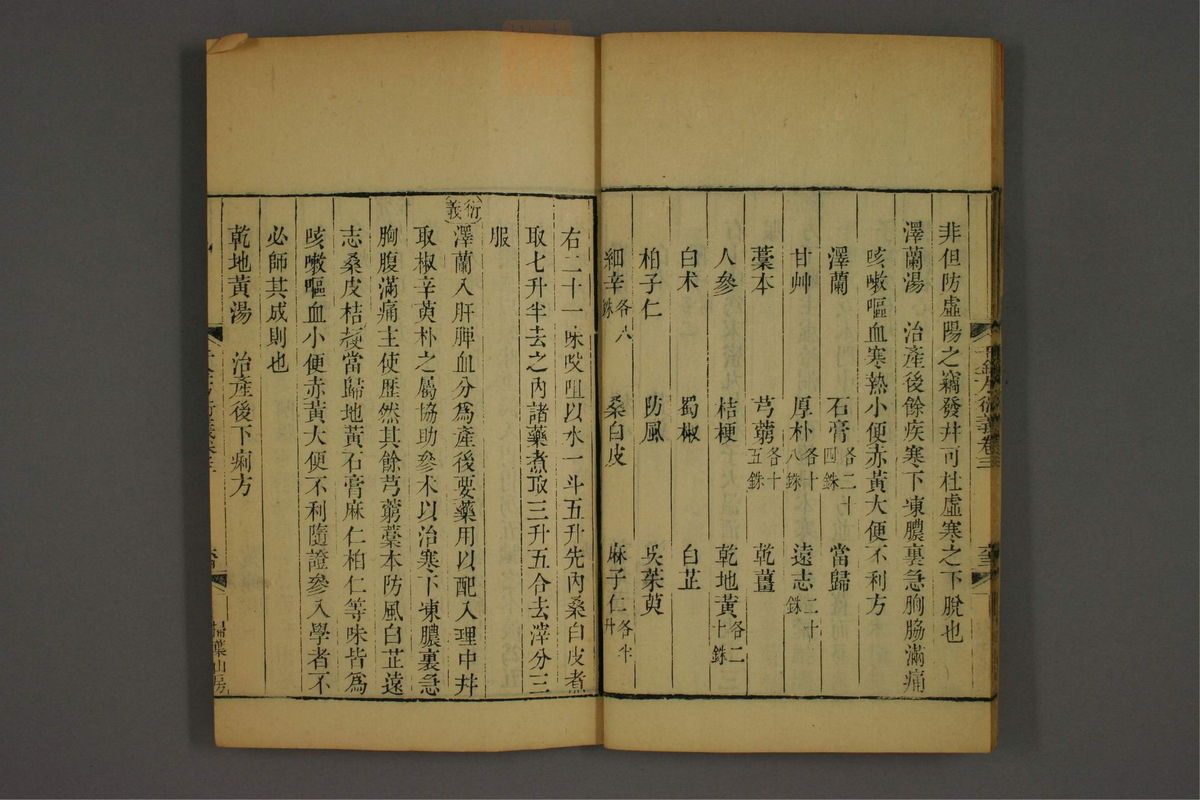 非但防虛陽之竊發幷可杜虛寒之下脫也
澤蘭湯 治產後餘疾寒下凍膿裏急胸脇滿痛
咳嗽嘔血寒熱小便赤黃大便不利方
澤蘭 石膏各二十四銖 當歸
甘艸 厚朴各十八銖 遠志二十銖
藁本 芎藭各十五銖 乾薑
人參 桔梗 乾地黃各二十銖
白朮 蜀椒 白芷
柏子仁 防風 吳茱萸
細辛各八銖 桑白皮 麻子仁各半升
右二十一味㕮咀以水一斗五升先內桑白皮煮
取七升半去之內諸藥煮取三升五合去滓分三
服
衍義 澤蘭入肝脾血分爲產後要藥用以配入理中幷
取椒辛萸朴之屬協助參朮以治寒下凍膿裏急
胸腹滿痛主使歷然其餘芎藭藁本防風白芷遠
志桑皮桔梗當歸地黃石膏麻仁柏仁等味皆爲
咳嗽嘔血小便赤黃大便不利隨證參入學者不
必師其成則也
乾地黃湯 治產後下痢方
掃葉山房